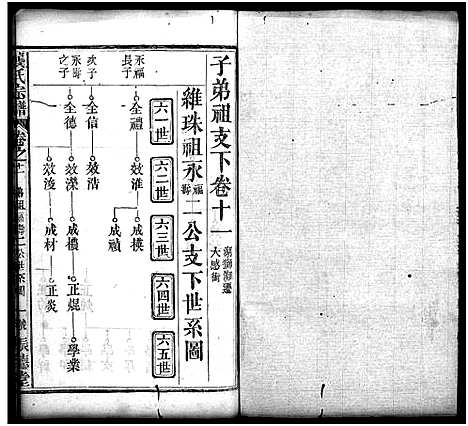 子弟祖支下卷十一
大感街
維珠祖永福壽二公支下世系圖
六一世 六二世 六三世 六四世 六五世
永福長子 全禮 效淮 成模
成禎
次子 全信 效浩
永壽之子 全德 效濚 成樸 正焜 學業
效浚 成材 正炎
氏宗譜 卷之十一